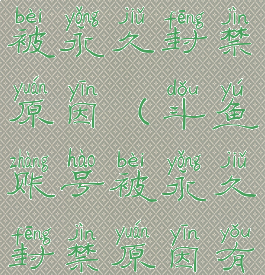 bèi yǒng jiǔ fēng jìn
被永久封禁
yuán yīn dǒu yú
原因（斗鱼
zhàng hào bèi yǒng jiǔ
账号被永久
fēng jìn yuán yīn yǒu
封禁原因有